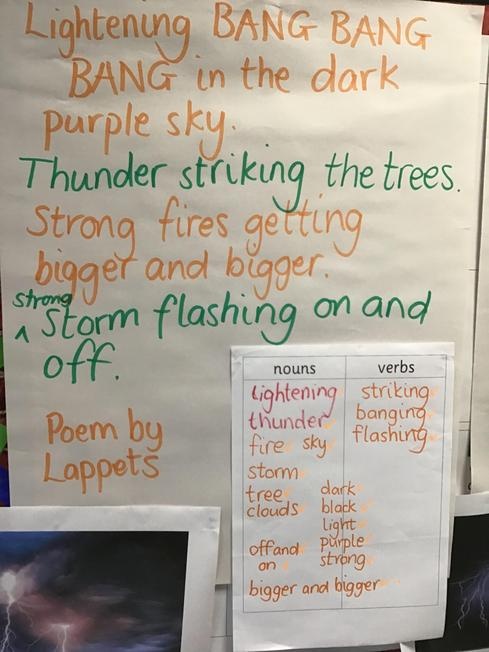 Lightening BANG BANG
BANG in the dark
purple sky.
Thunder striking the trees.
Strong fires getting
bigger and bigger.
strong
^ Storm flashing on and
off.
Poem by
Lappets
nouns verbs
lightening striking
thunder banging
fire sky flashing
storm
tree dark
clouds black
light
off and purple
on strong
bigger and bigger